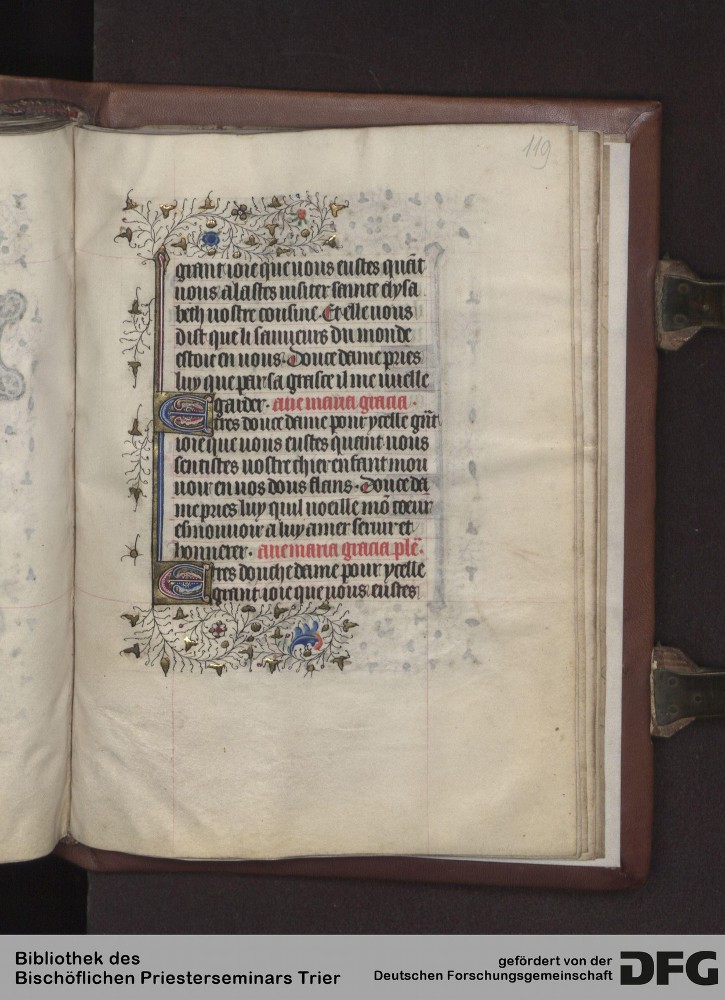 119
grant ioie que uous eustes quāt
uous alastes uisiter sainte elysa
beth uostre cousine. Et elle uous
dist que li sauueurs du monde
estoit en uous. Douce dame pries
luy que par sa grasce il me uuelle
garder. aue maria gracia.
E tres douce dame pour ycelle grāt
ioie que uous eustes quant uous
sentistes uostre chier enfant mou
uoir en uos dous flans. Douce da
me pries luy quil uoeille mō coeur
esmouuoir a luy amer seruir et
honnerer. aue maria gracia plē.
E tres douche dame pour ycelle
grant ioie que uous eustes
Bibliothek des
Bischöflichen Priesterseminars Trier
gefördert von der
Deutschen Forschungsgemeinschaft
DFG